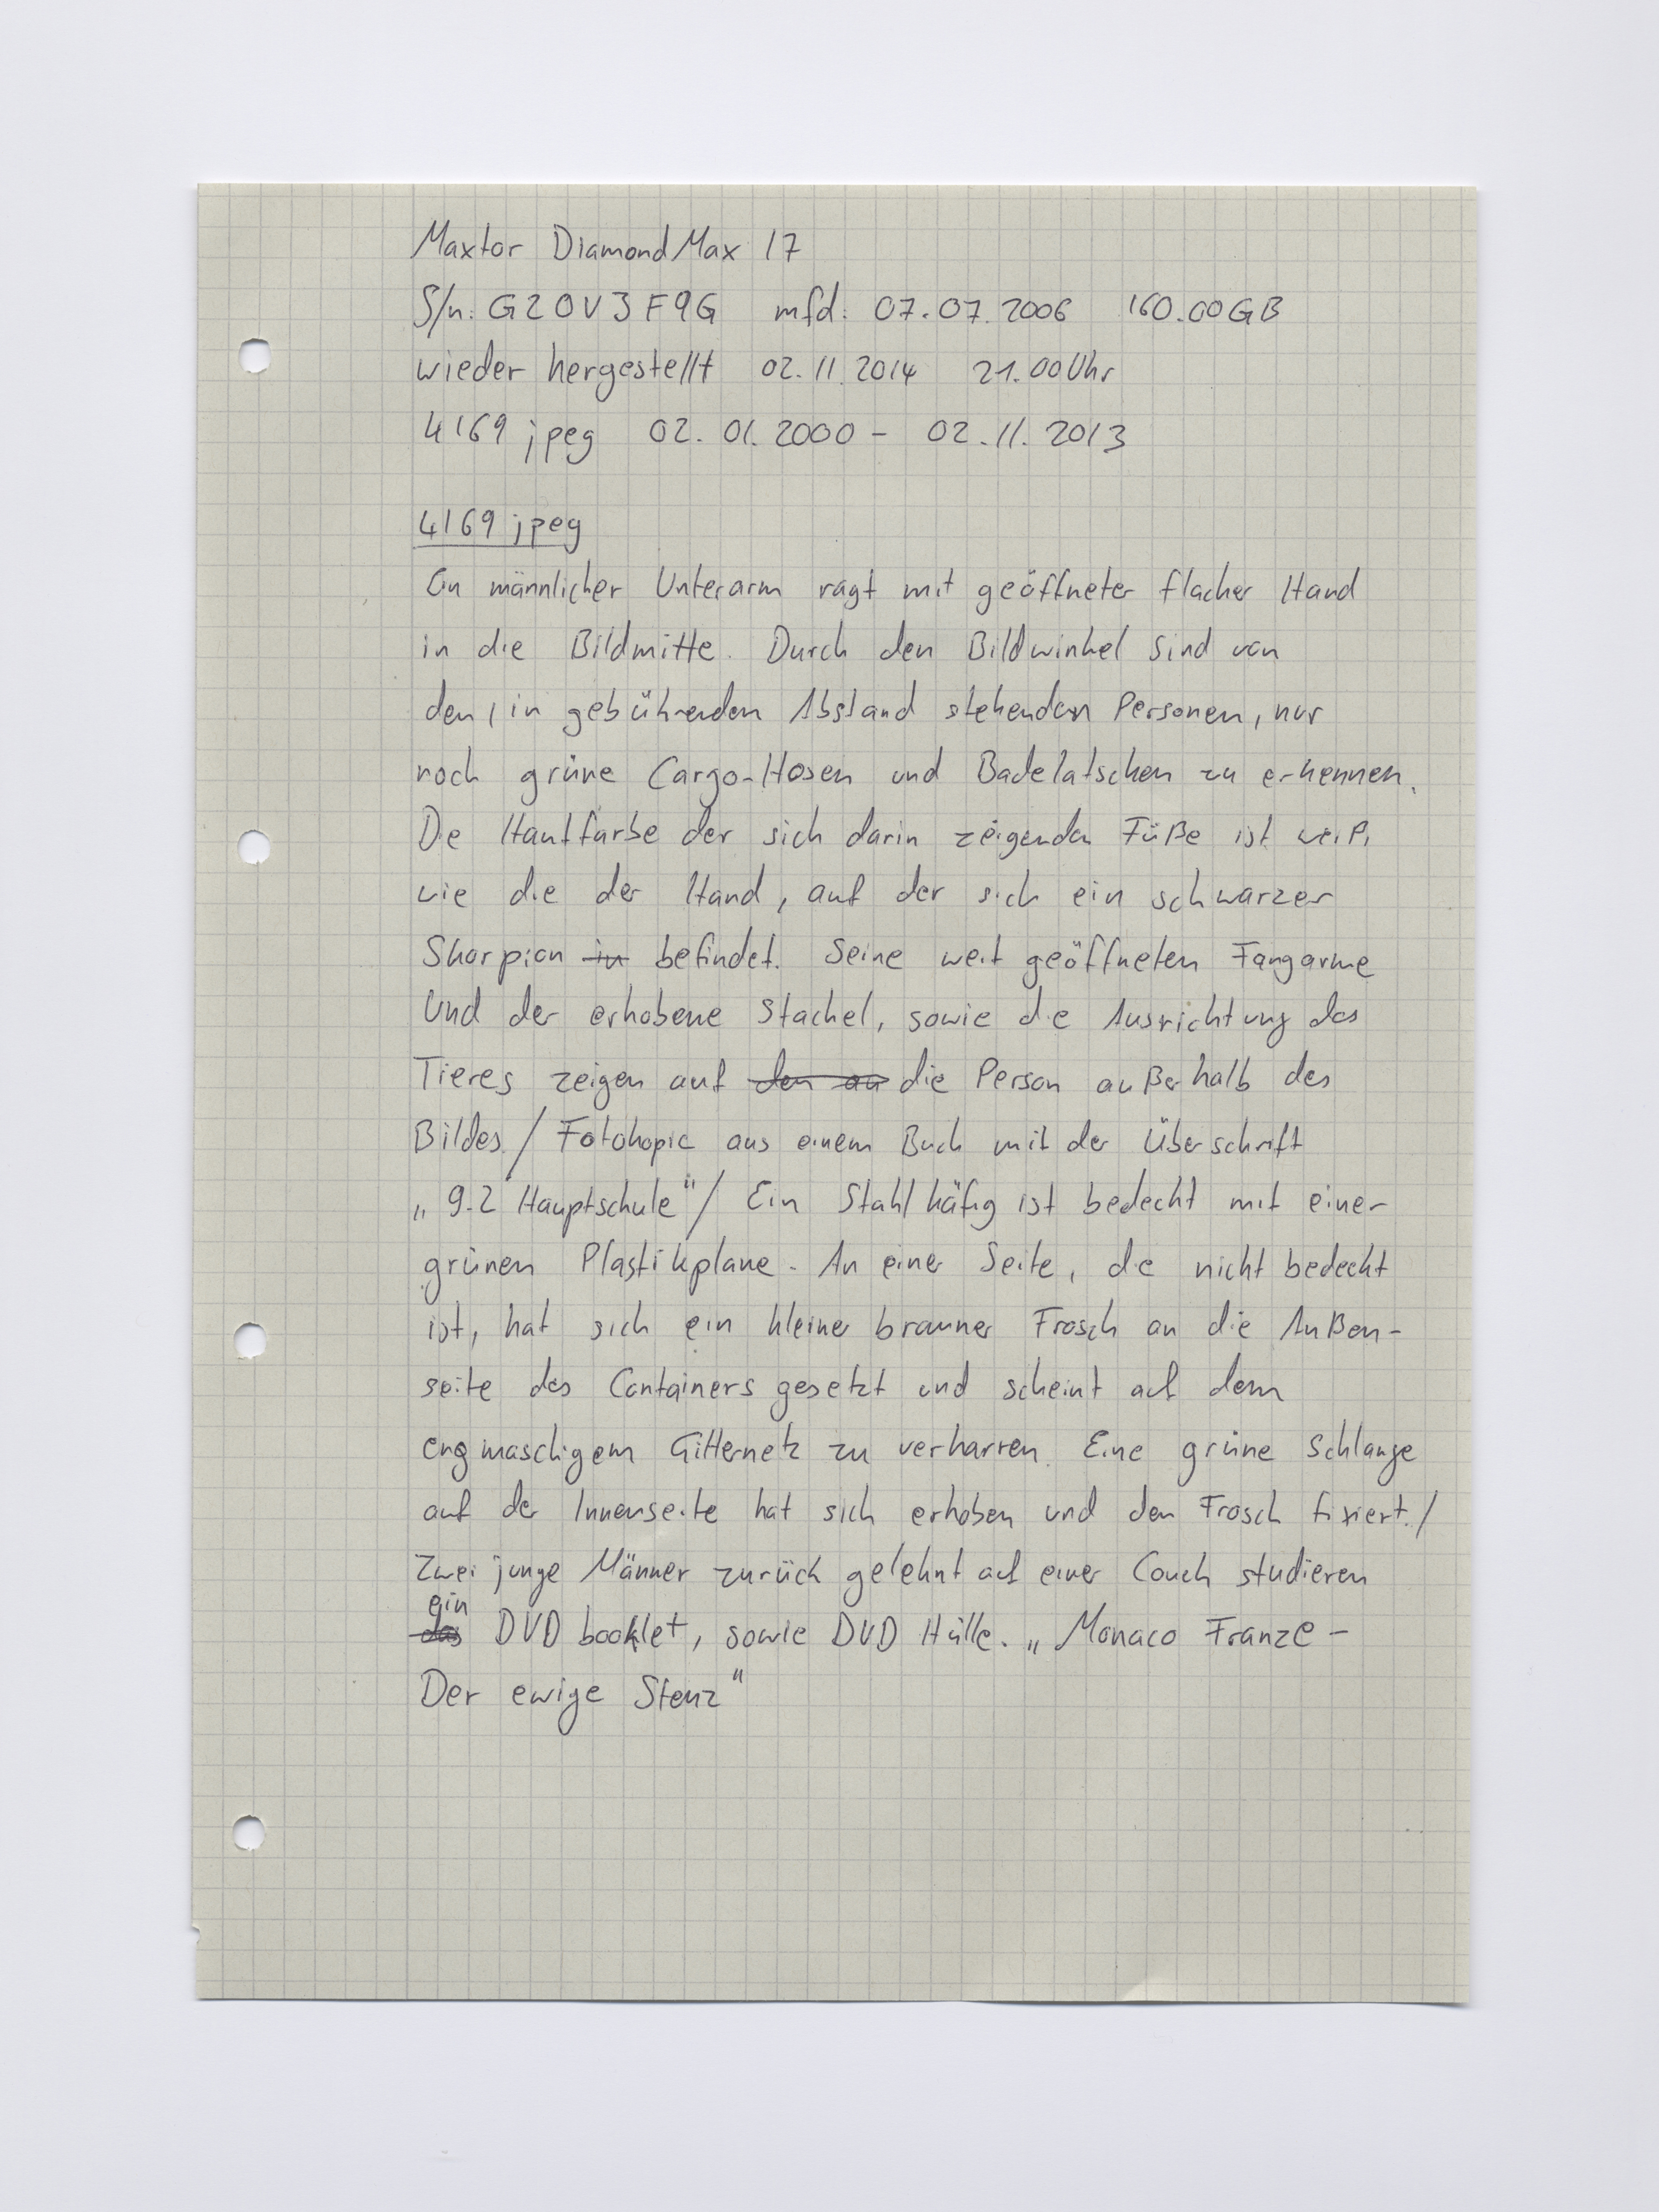 Maxtor DiamondMax 17
S/n: G20V3F9G mfd: 07.07.2006 160.00GB
wieder hergestellt 02.11.2014 21.00Uhr
4169 jpeg 02.01.2000 - 02.11.2013
4169 jpeg
Ein männlicher Unterarm ragt mit geöffneter flacher Hand
in die Bildmitte. Durch den Bildwinkel sind von
den, in gebührenden Abstand stehenden Personen, nur
noch grüne Cargo-Hosen und Badelatschen zu erkennen.
Die Hautfarbe der sich darin zeigenden Füße ist weiß,
wie die der Hand, auf der sich ein schwarzer
Skorpion in befindet. Seine weit geöffneten Fangarme
Und der erhobene Stachel, sowie die Ausrichtung des
Tieres zeigen auf den an die Person außerhalb des
Bildes./ Fotokopie aus einem Buch mit der Überschrift
„9.2 Hauptschule"/ Ein Stahlkäfig ist bedeckt mit einer
grünen Plastikplane. An einer Seite, die nicht bedeckt
ist, hat sich ein kleiner brauner Frosch an die Außen-
seite des Containers gesetzt und scheint auf dem
engmaschigem Gitternetz zu verharren. Eine grüne Schlange
auf der Innenseite hat sich erhoben und den Frosch fixiert./
Zwei junge Männer zurück gelehnt auf einer Couch studieren
ein
das DVD booklet, sowie DVD Hülle. „Monaco Franze -
Der ewige Stenz"